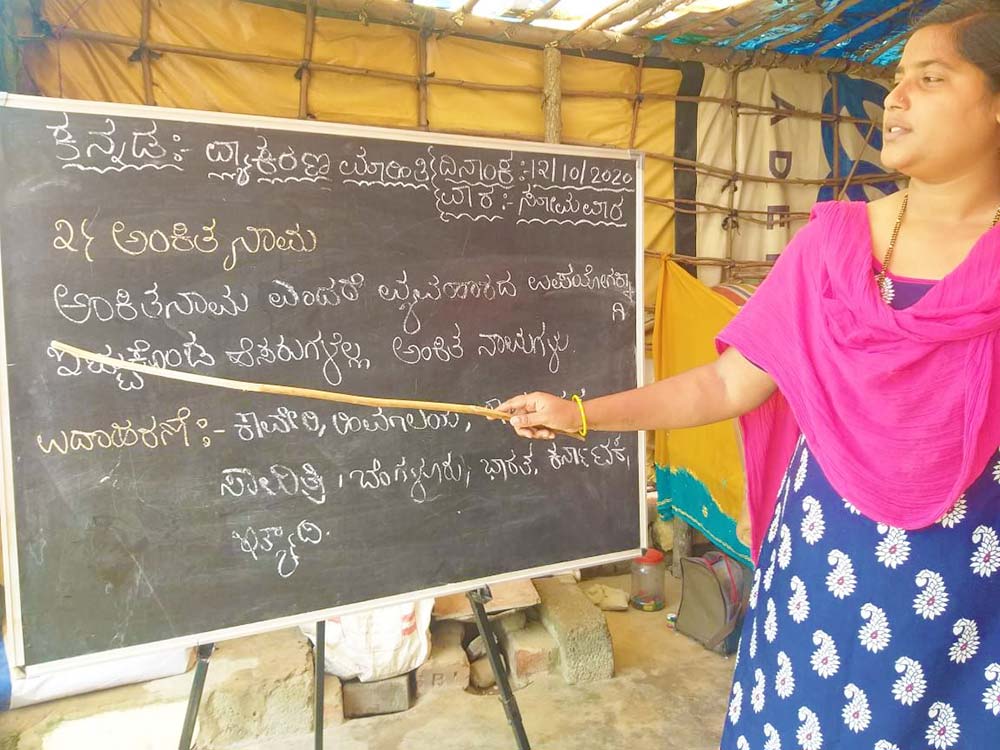 ಕನ್ನಡ:- ವ್ಯಾಕರಣ ಮಾಹಿತಿ ದಿನಾಂಕ:-12/10/2020
ವಾರ:- ಸೋಮವಾರ
೨) ಅಂಕಿತ ನಾಮ
ಅಂಕಿತನಾಮ ಎಂದರೆ ವ್ಯವಹಾರದ ಉಪಯೋಗಕ್ಕಾಗಿ
ಇಟ್ಟುಕೊಂಡ ಹೆಸರುಗಳೆಲ್ಲ ಅಂಕಿತ ನಾಮಗಳು.
ಉದಾಹರಣೆ:- ಕಾವೇರಿ, ಹಿಮಾಲಯ,
ಸಾವಿತ್ರಿ, ಬೆಂಗ್ಳೂರು, ಭಾರತ, ಕರ್ನಾಟಕ,
ಇತ್ಯಾದಿ.